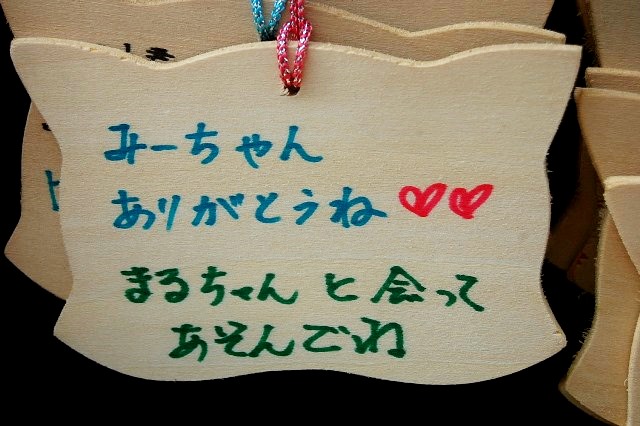 みーちゃん
ありがとうね♡♡
まるちゃんと会って
あそんでいね